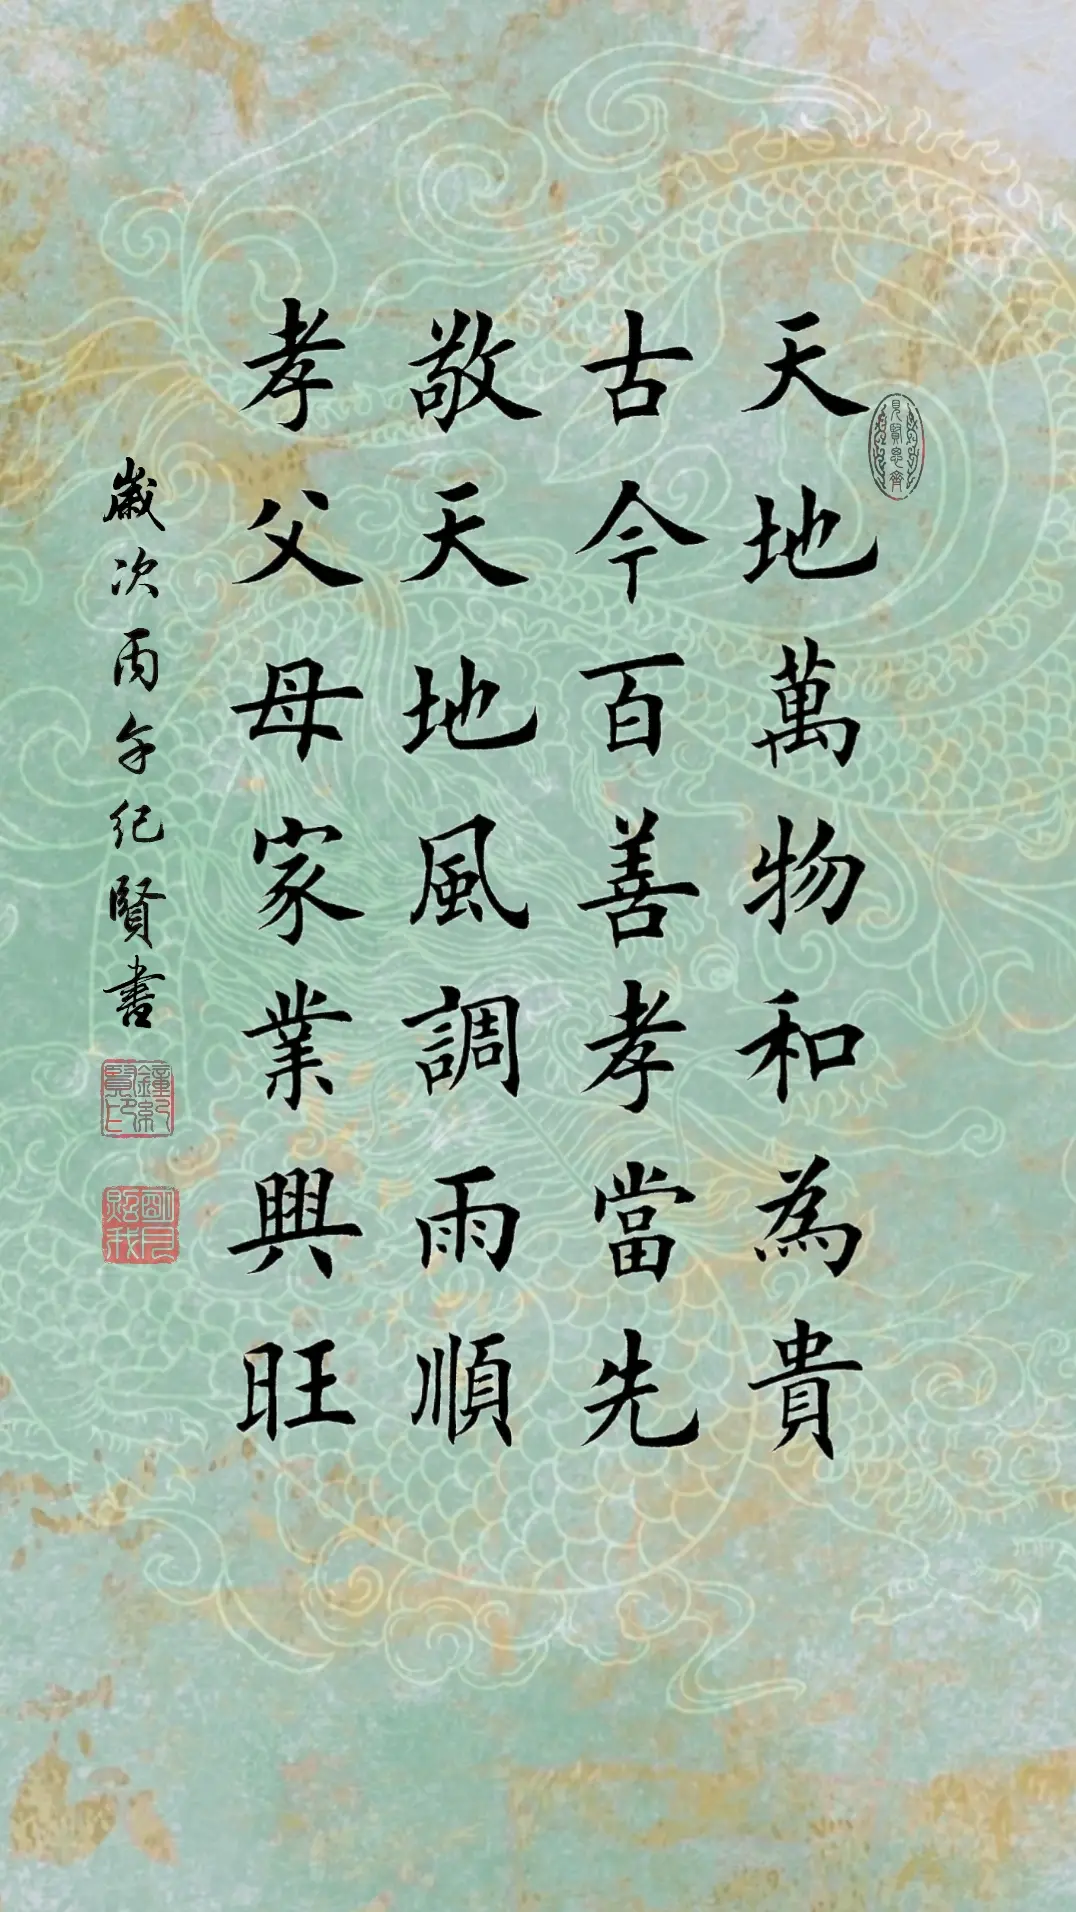 天地萬物和為貴
古今百善孝當先
敬天地風調雨順
孝父母家業興旺
歲次丙午紀賢書
見賢思齊
鐘紀賢印